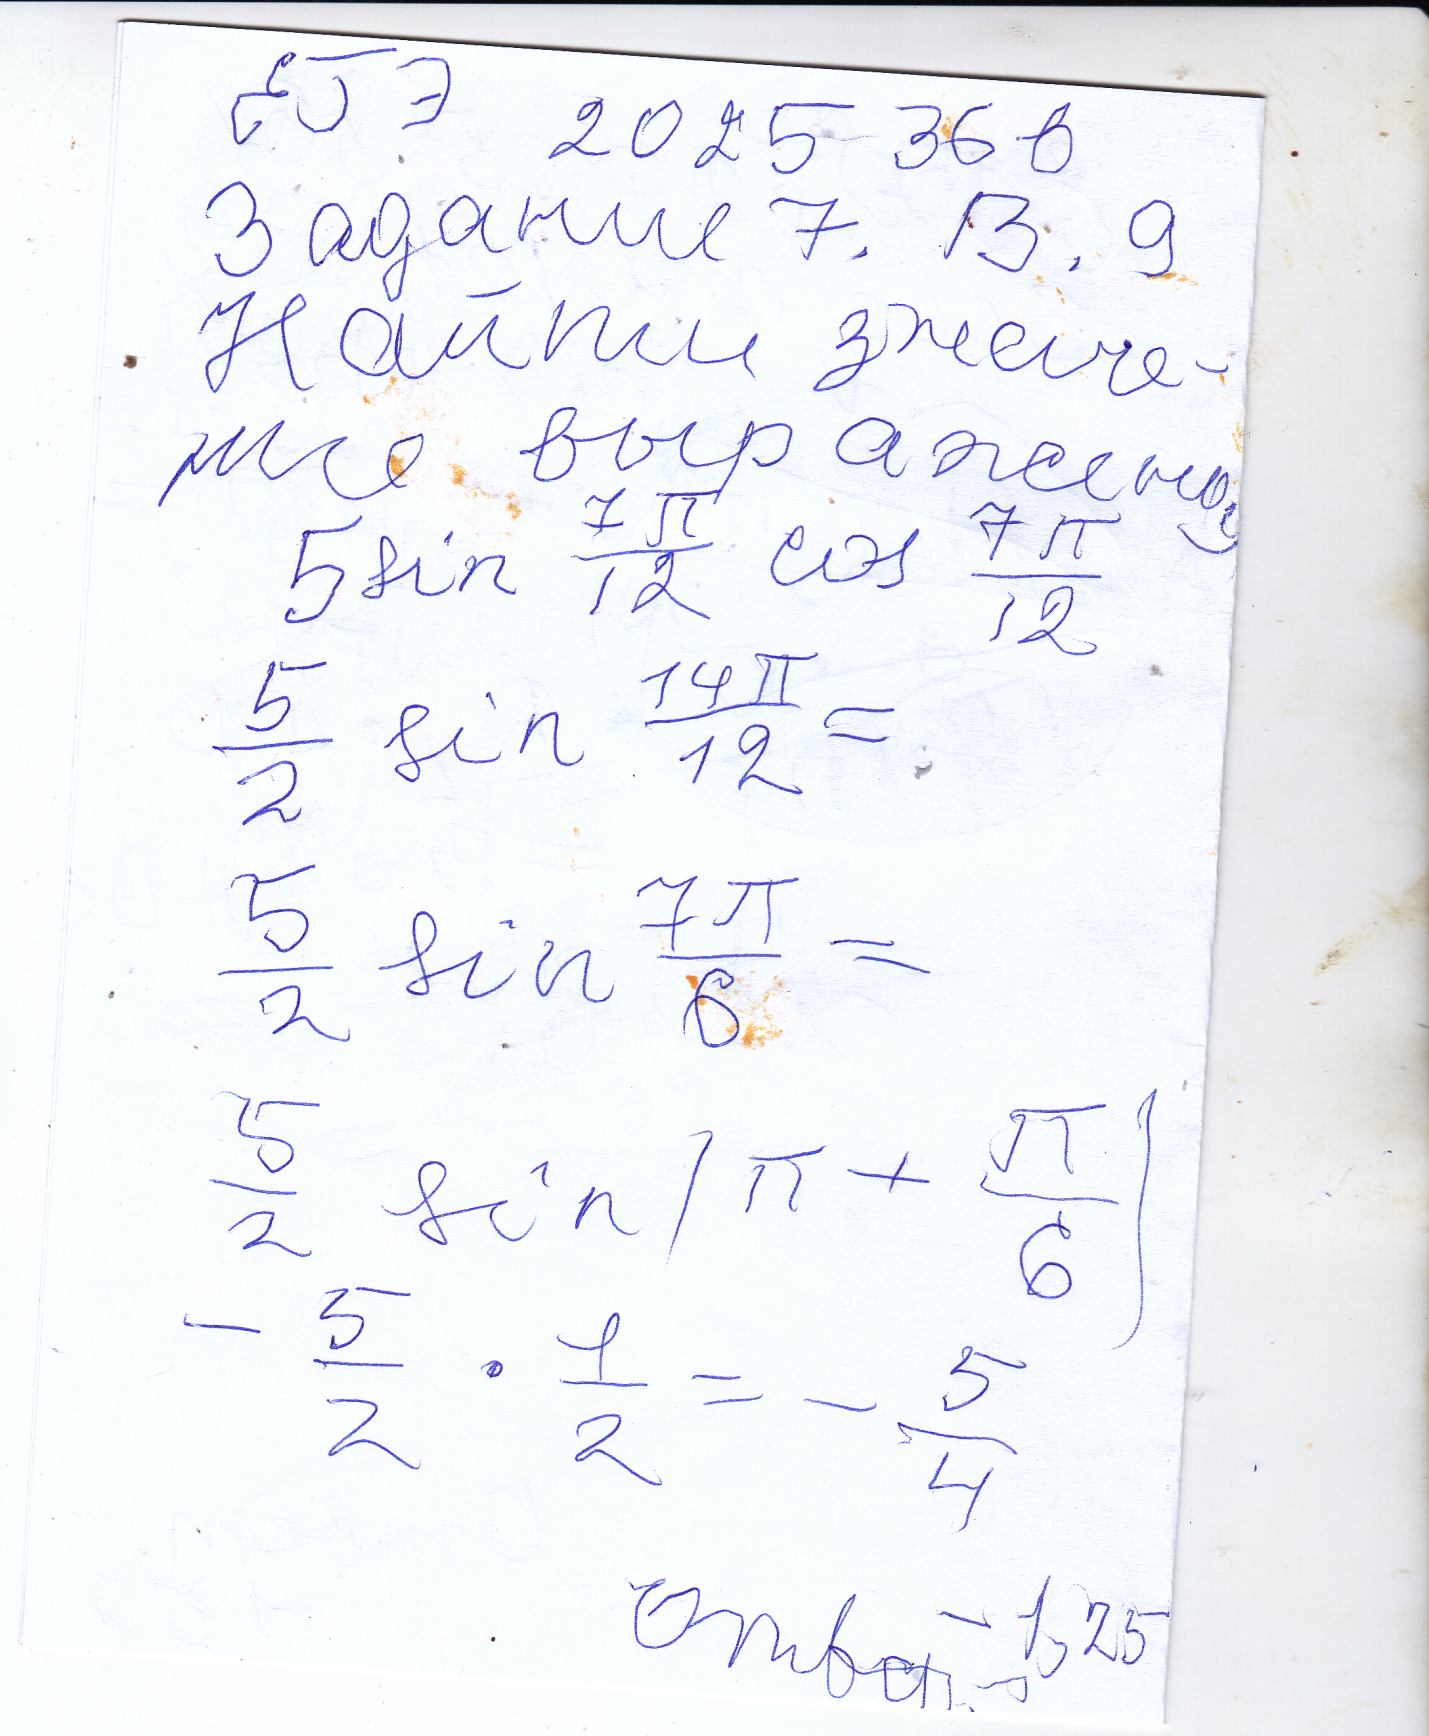 ЕГЭ 2025 36 в
Задание 7. В. 9
Найти значе-
ние выражения
5 sin 7π/12 cos 7π/12
5/2 sin 14π/12 =
5/2 sin 7π/6 =
5/2 sin (π + π/6)
- 5/2 · 1/2 = - 5/4
Ответ: -1,25